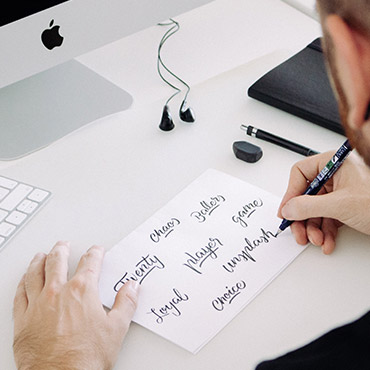 chao Ballers game
Twenty player unsplash
Loyal choice